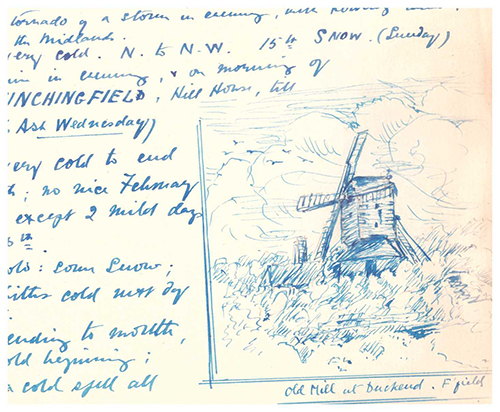 tornado of a storm in evening, with howling
the Midlands.
very cold. N. to N-W. 15th SNOW. (Sunday)
in evening, & on morning of
INCHINGFIELD, Hill House, till
Ash Wednesday)
very cold to end
; no nice February
except 2 mild days
th
: some Snow;
cold
ending to month,
old beginning;
cold spell all
Old Mill at Duckend. F'field